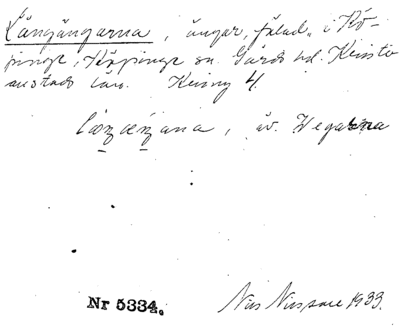 Långängarna, ängar, fälad, i Kö-
pinge, Köpinge sn. Gärds hd. Kristi-
anstads län. Kning 4.
av. Wegarna
Nr 5334. Nils Nilsson 1933.